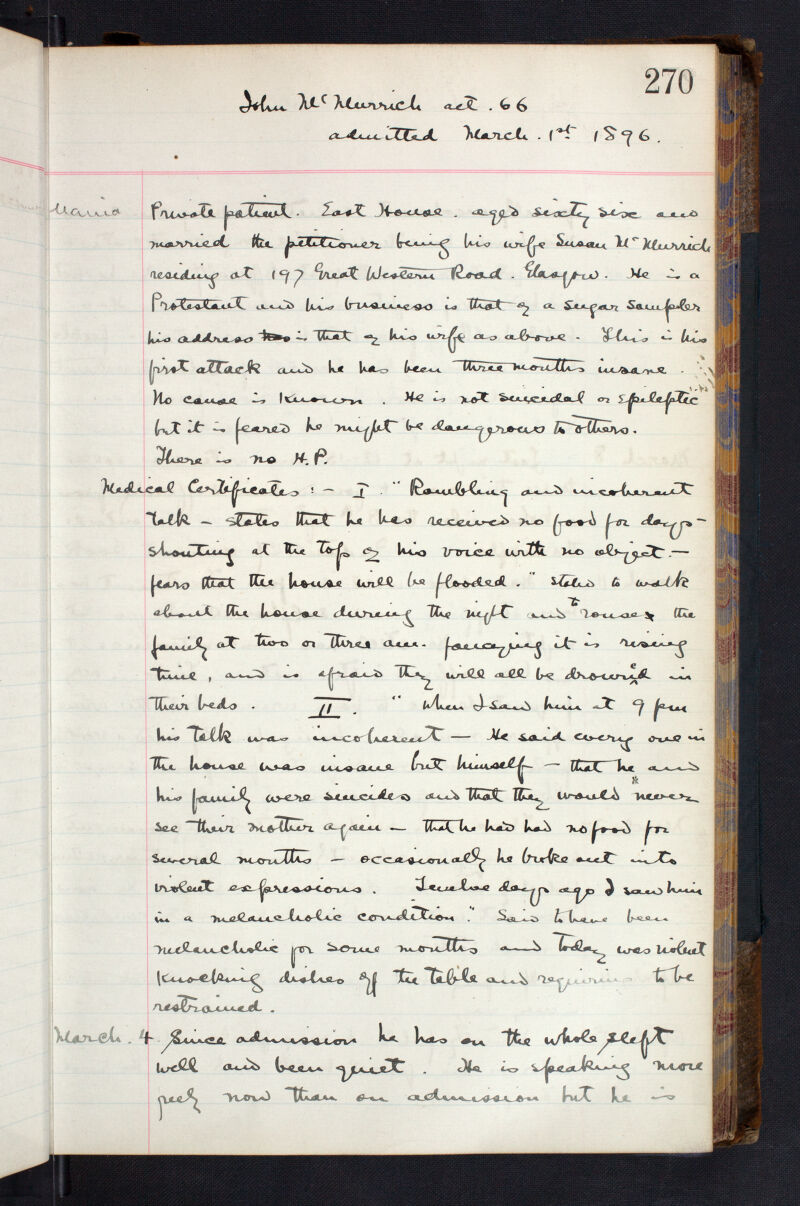 270
John McMurrich aet. 66
admitted March. 1st 1896.
Mania
Private patient. East House. aged sixty six and
married the petitioner being his wife Susan McMurrich
residing at 197 Great Western Road. Glasgow. He is a
Protestant and his business is that of a sugar sampler
his address is that of his wife as above. This is his
first attack and he has been three months insane.
No cause is known. He is not suicidal or epileptic
but it is feared he might be dangerous to others.
There is no H.P.
Medical Certificates :- I. "Rambling and incoherent
talk - states that he has received no food for days -
shouting at the top of his voice with no object. -
fears that the house will be flooded." stated to walk
about the house during the night and to rouse the
family at two or three a.m. fancying it is rising
time, and is afraid they will all be drown'd in
their beds. II. "When I saw him at 9 pm
his talk was incoherent - He said every one in
the house was insane but himself - that he and
his family were suicides and that they would never
see their mother again - that he had had no food for
several months - occasionally he broke out into
violent expressions. Twelve days ago I saw him
in a melancholic condition." Said to have been
melancholic for some months and today was violent
knocking dishes off the table and requiring to be
restrained.
March. 4 Since admission he has on the whole slept
well and been quiet. He is speaking more
freely now than on admission but he is